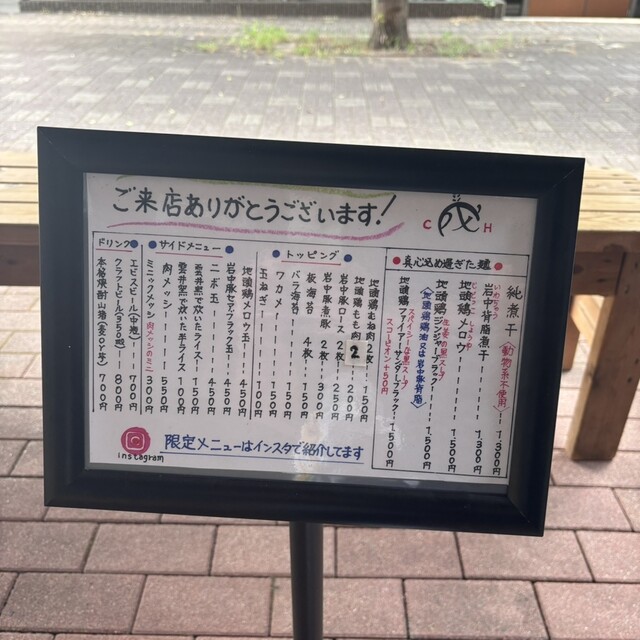 ご来店ありがとうございます!
C H
真心込め過ぎた麺
純煮干《動物系不使用》 1,300円
いわちゅう
岩中背脂煮干 1,300円
じとっこ しょうゆ
地頭鶏メロウ 1,500円
圧巻の黒スープ
地頭鶏ジンジャーブラック 1,500円
《地頭鶏鶏油又は岩中豚背脂》
スパイシーな黒スープ
地頭鶏ファイアーサンダーブラック 1,500円
スコーピオン+50円
トッピング
地頭鶏むね肉 2枚 150円
地頭鶏もも肉 2
岩中豚ロース 2枚 200円
岩中豚煮豚 2枚 300円
板海苔 4枚 150円
バラ海苔 150円
ワカメ 100円
玉ねぎ 100円
サイドメニュー
地頭鶏メロウ玉 450円
岩中豚セアブラック玉 450円
ニボ玉 450円
雲井窯で炊いたライス 150円
雲井窯で炊いた半ライス 100円
肉メッシ 550円
ミニックメッシ 肉メッシのミニ 300円
ドリンク
エビスビール(中瓶) 700円
クラフトビール(350㎖) 800円
本格焼酎山猪(麦or芋) 700円
Instagram
限定メニューはインスタで紹介してます